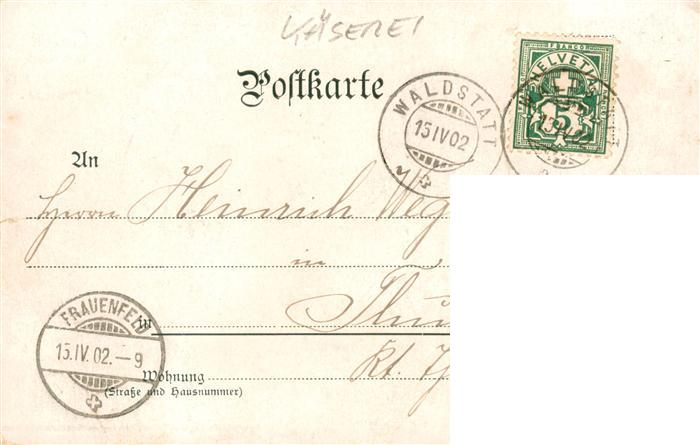 KÄSEREI
Postkarte
FRANCO
HELVETIA
5
WALDSTATT
15 IV 02
An
Herrn Heinrich Weg
in
Thu
FRAUENFELD
15. IV. 02. – 9
in
Kt. Th
Wohnung
(Straße und Hausnummer)